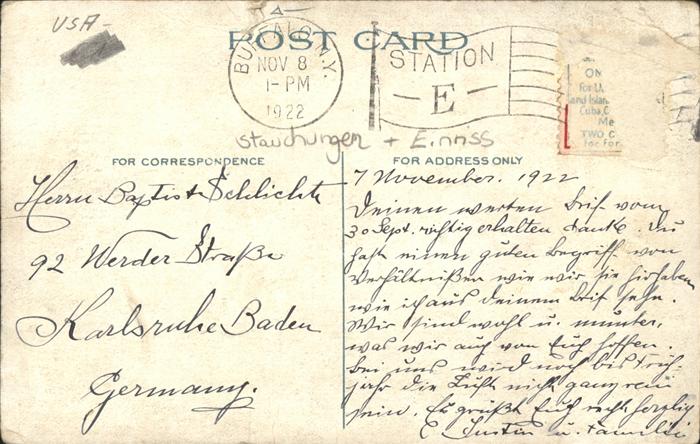 USA-
POST CARD
BUFFALO, N.Y.
NOV 8
1-PM
1922
STATION
-E-
ON
For U.
and Islan
Cuba, C
Me
TWO C
for for
Stauchungen +
FOR CORRESPONDENCE
FOR ADDRESS ONLY
Herrn Baptist Schlichte
92 Werder Straße
Karlsruhe Baden
Germany.
7 November. 1922
Deinen werten Brif vom
30 Sept. richtig erhalten danke. Du
hast einen guten Begriff von
Verhältnißen wie wir sie hir haben
wie ich aus deinem Brif sehe.
Wir sind wohl u. munter,
was wir auch von Euch hoffen.
Bei uns wird noch bis Früh-
jahr die Luft nicht ganz rein
sein. Es grüßt Euch recht herzlich
E. u. Familie